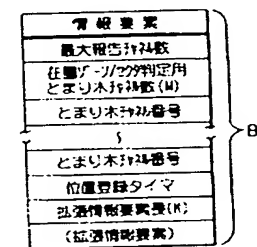 情報要素
最大報告チャネル数
在圏ゾーン/セクタ判定用
とまり木チャネル数(M)
とまり木チャネル番号
とまり木チャネル番号
位置登録タイマ
拡張情報要素長(K)
(拡張情報要素)
B